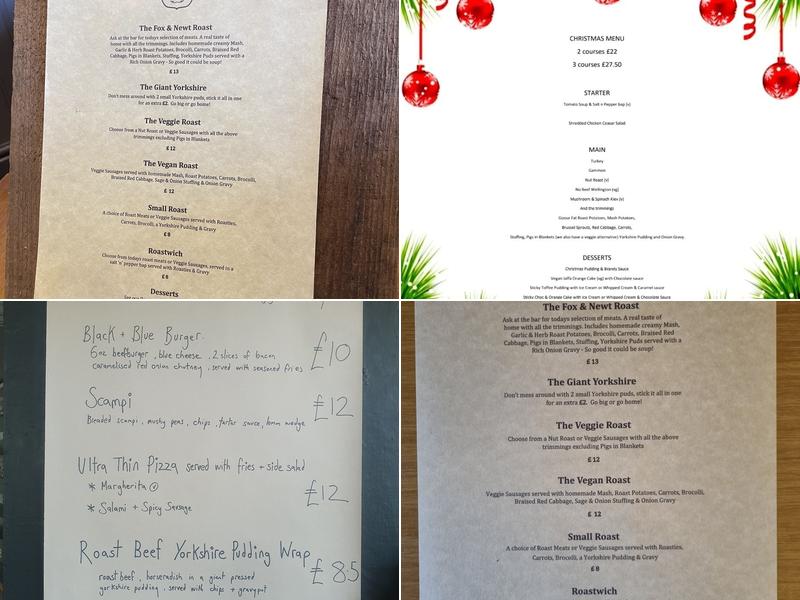 The Fox & Newt Roast
Ask at the bar for todays selection of meats. A real taste of
home with all the trimmings. Includes homemade creamy Mash,
Garlic & Herb Roast Potatoes, Brocolli, Carrots, Braised Red
Cabbage, Pigs in Blankets, Stuffing, Yorkshire Puds served with a
Rich Onion Gravy - So good it could be soup!
£13
The Giant Yorkshire
Don't mess around with 2 small Yorkshire puds, stick it all in one
for an extra £2. Go big or go home!
The Veggie Roast
Choose from a Nut Roast or Veggie Sausages with all the above
trimmings excluding Pigs in Blankets
£12
The Vegan Roast
Veggie Sausages served with homemade Mash, Roast Potatoes, Carrots, Brocolli,
Braised Red Cabbage, Sage & Onion Stuffing & Onion Gravy
£ 12
Small Roast
A choice of Roast Meats or Veggie Sausages served with Roasties,
Carrots, Brocolli, a Yorkshire Pudding & Gravy
£8
Roastwich
Choose from todays roast meats or Veggie Sausages, served in a
salt 'n' pepper bap served with Roasties & Gravy
£8
Desserts
CHRISTMAS MENU
2 courses £22
3 courses £27.50
STARTER
Tomato Soup & Salt n Pepper Bap (v)
Shredded Chicken Ceasar Salad
MAIN
Turkey
Gammon
Nut Roast (v)
No Beef Wellington (vg)
Mushroom & Spinach Kiev (v)
And the trimmings
Goose Fat Roast Potatoes, Mash Potatoes,
Brussel Sprouts, Red Cabbage, Carrots,
Stuffing, Pigs in Blankets (we also have a veggie alternative) Yorkshire Pudding and Onion Gravy
DESSERTS
Christmas Pudding & Brandy Sauce
Vegan Jaffa Orange Cake (vg) with Chocolate sauce
Sticky Toffee Pudding with Ice Cream or Whipped Cream & Caramel sauce
Sticky Choc & Orange Cake with Ice Cream or Whipped Cream & Chocolate Sauce
Black + Blue Burger.
6oz beefburger, blue cheese, 2 slices of bacon
caramelised red onion chutney, served with seasoned fries
£10
Scampi
Breaded scampi, mushy peas, chips, tartar sauce, lemon wedge
£12
Ultra Thin Pizza served with fries + side salad
* Margherita (v)
* Salami + Spicy Sausage
£12
Roast Beef Yorkshire Pudding Wrap
roast beef, horseradish in a giant pressed
yorkshire pudding, served with chips + gravy pot
£8.5
The Fox & Newt Roast
Ask at the bar for todays selection of meats. A real taste of
home with all the trimmings. Includes homemade creamy Mash,
Garlic & Herb Roast Potatoes, Brocolli, Carrots, Braised Red
Cabbage, Pigs in Blankets, Stuffing, Yorkshire Puds served with a
Rich Onion Gravy - So good it could be soup!
£13
The Giant Yorkshire
Don't mess around with 2 small Yorkshire puds, stick it all in one
for an extra £2. Go big or go home!
The Veggie Roast
Choose from a Nut Roast or Veggie Sausages with all the above
trimmings excluding Pigs in Blankets
£12
The Vegan Roast
Veggie Sausages served with homemade Mash, Roast Potatoes, Carrots, Brocolli,
Braised Red Cabbage, Sage & Onion Stuffing & Onion Gravy
£ 12
Small Roast
A choice of Roast Meats or Veggie Sausages served with Roasties,
Carrots, Brocolli, a Yorkshire Pudding & Gravy
£8
Roastwich